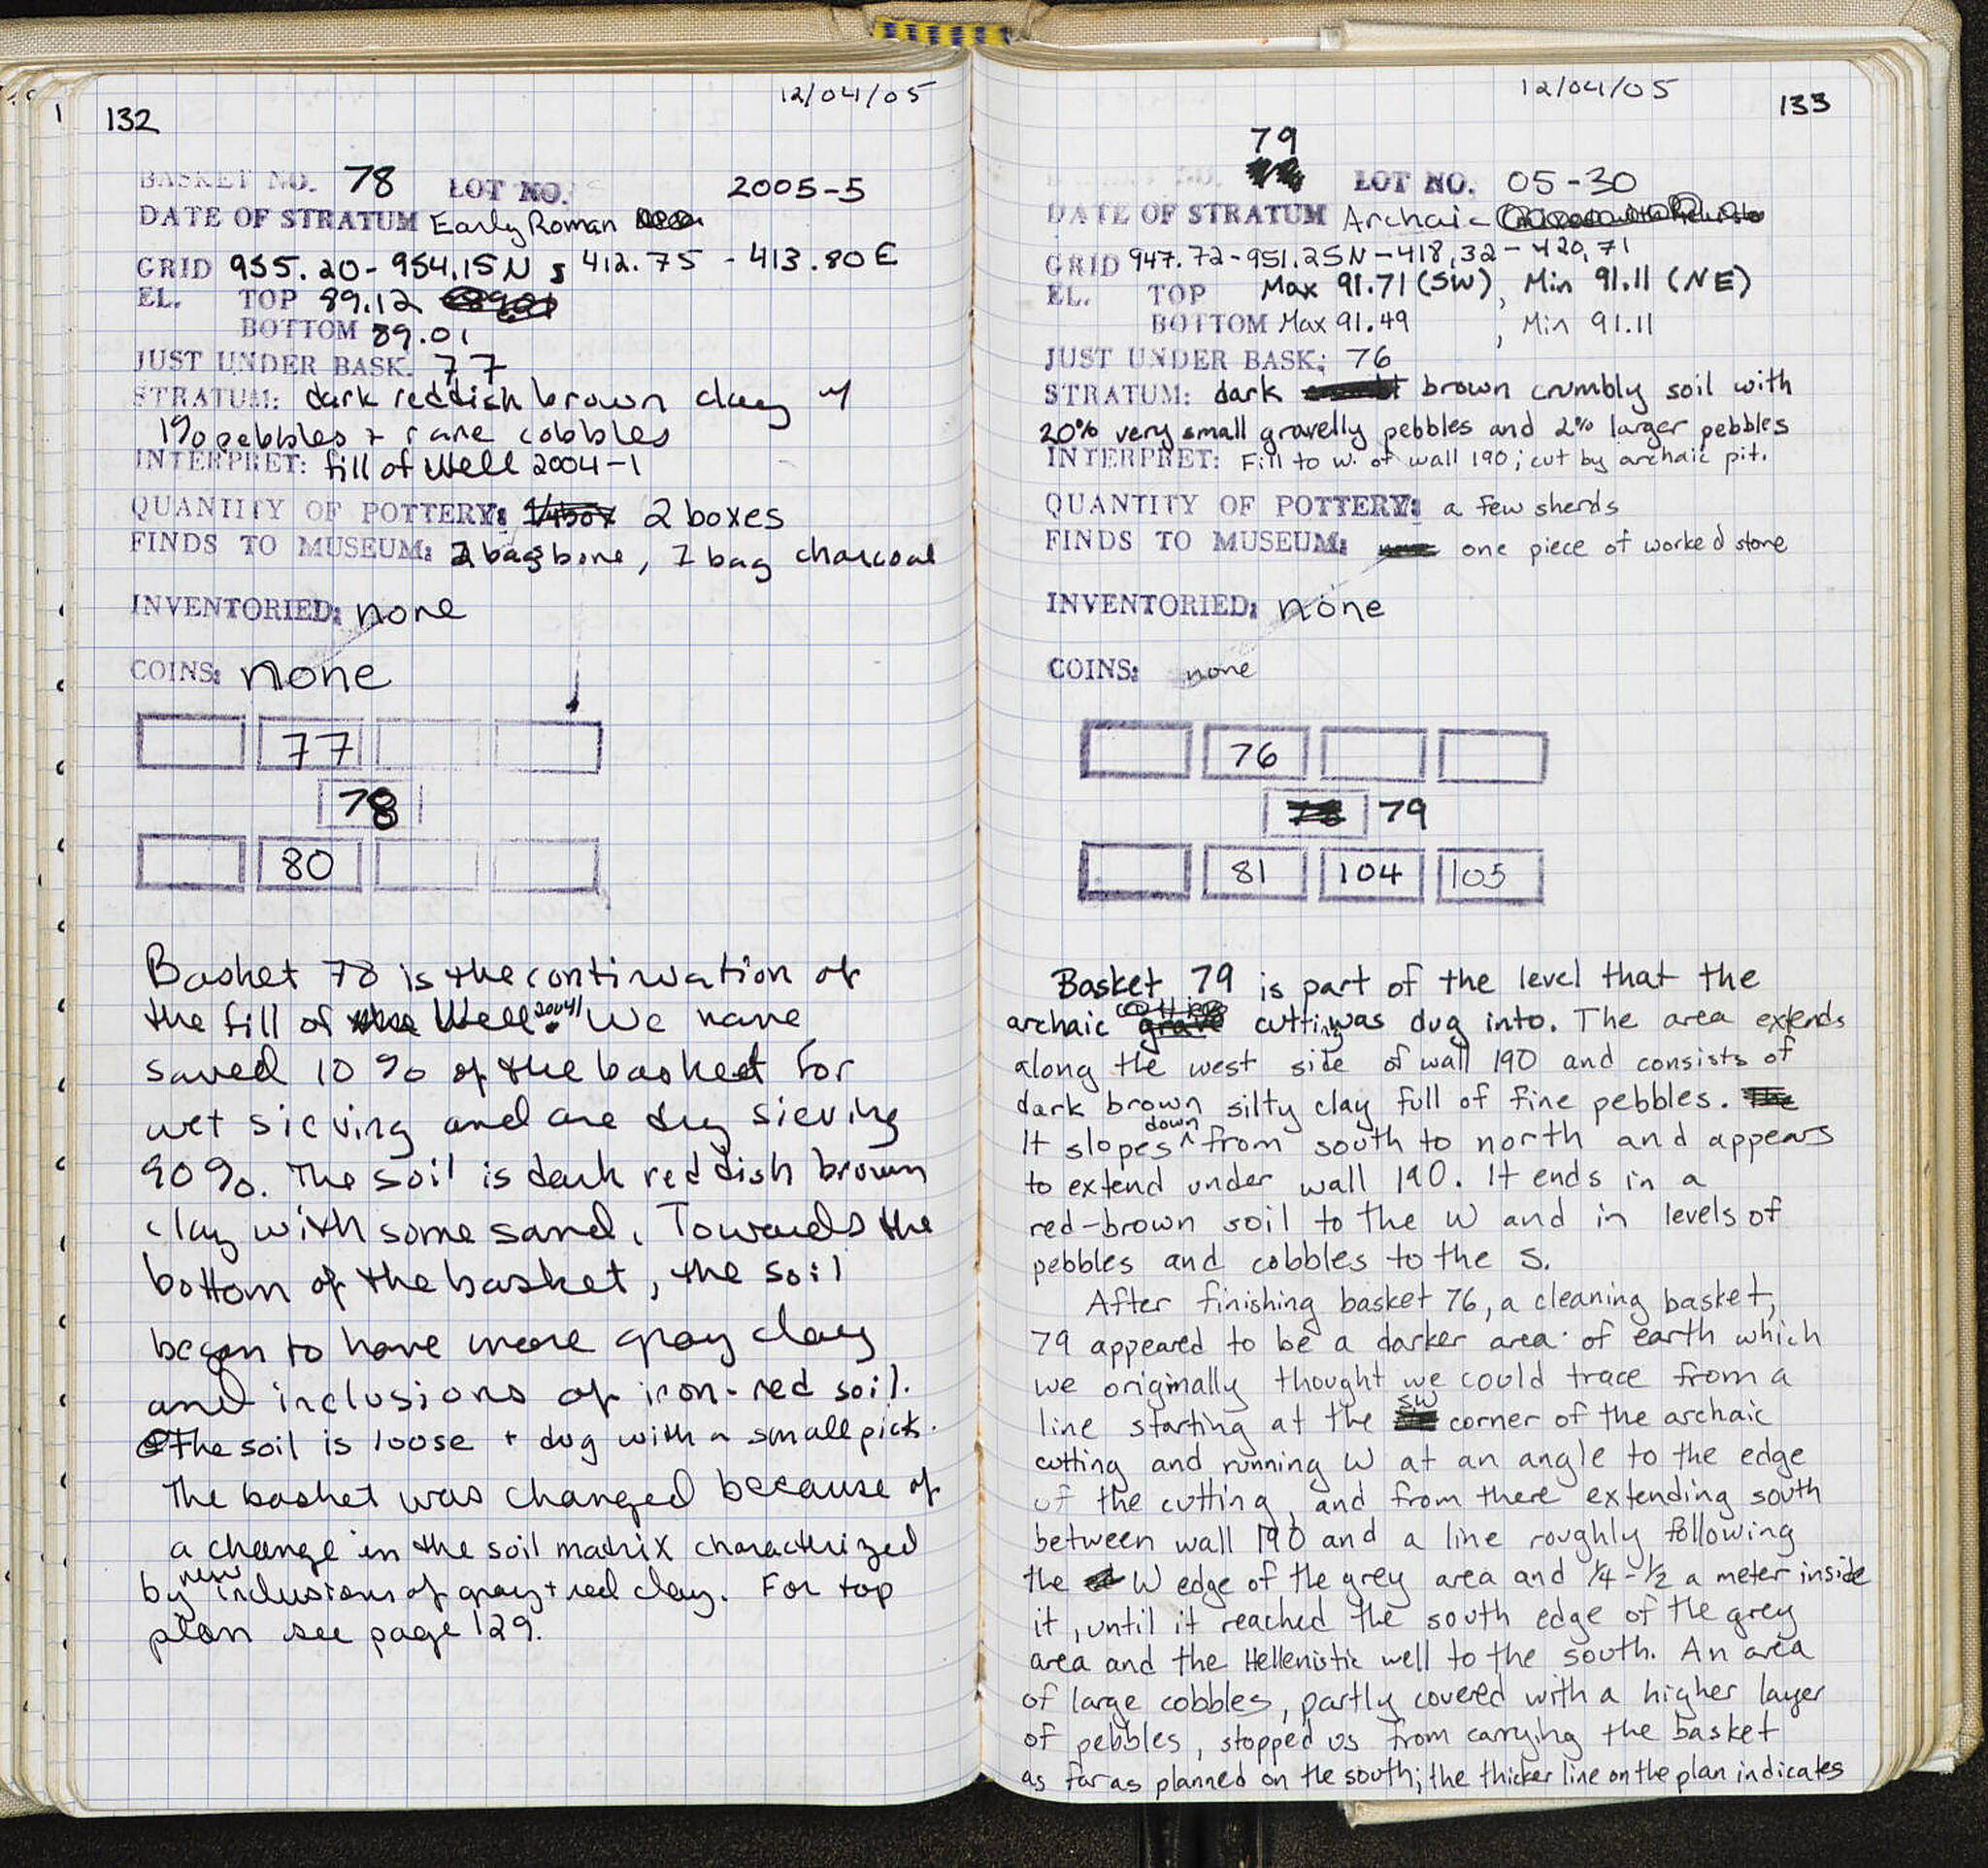 12/04/05
132
BASKET NO. 78 LOT NO. 2005-5
DATE OF STRATUM Early Roman
GRID 955.20-954.15N, 412.75 - 413.80E
EL. TOP 89.12
BOTTOM 89.01
JUST UNDER BASK. 77
STRATUM: dark reddish brown clay w/
1% pebbles + rare cobbles
INTERPRET: fill of Well 2004-1
QUANTITY OF POTTERY: 2 boxes
FINDS TO MUSEUM: 2 bags bone, 1 bag charcoal
INVENTORIED: none
COINS: none
77
78
80
Basket 78 is the continuation of
the fill of Well 2004-1. We have
saved 10% of the basket for
wet sieving and are dry sieving
90%. The soil is dark reddish brown
clay with some sand. Towards the
bottom of the basket, the soil
began to have more gray clay
and inclusions of iron-red soil.
The soil is loose + dug with a small pick.
The basket was changed because of
a change in the soil matrix characterized
by new inclusions of gray + red clay. For top
plan see page 129.
12/04/05
133
79
LOT NO. 05-30
DATE OF STRATUM Archaic
GRID 947.72-951.25N-418.32-420.71
EL. TOP Max 91.71 (SW), Min 91.11 (NE)
BOTTOM Max 91.49, Min 91.11
JUST UNDER BASK: 76
STRATUM: dark brown crumbly soil with
20% very small gravelly pebbles and 2% larger pebbles
INTERPRET: Fill to W. of wall 190; cut by archaic pit.
QUANTITY OF POTTERY: a few sherds
FINDS TO MUSEUM: one piece of worked stone
INVENTORIED: none
COINS: none
76
79
81 104 105
Basket 79 is part of the level that the
archaic cutting was dug into. The area extends
along the west side of wall 190 and consists of
dark brown silty clay full of fine pebbles.
It slopes down from south to north and appears
to extend under wall 190. It ends in a
red-brown soil to the W and in levels of
pebbles and cobbles to the S.
After finishing basket 76, a cleaning basket,
79 appeared to be a darker area of earth which
we originally thought we could trace from a
line starting at the SW corner of the archaic
cutting and running W at an angle to the edge
of the cutting, and from there extending south
between wall 190 and a line roughly following
the W edge of the grey area and 1/4-1/2 a meter inside
it, until it reached the south edge of the grey
area and the Hellenistic well to the south. An area
of large cobbles, partly covered with a higher layer
of pebbles, stopped us from carrying the basket
as far as planned on the south; the thicker line on the plan indicates